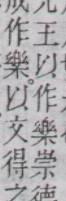 王以作樂崇德
作樂以文得之